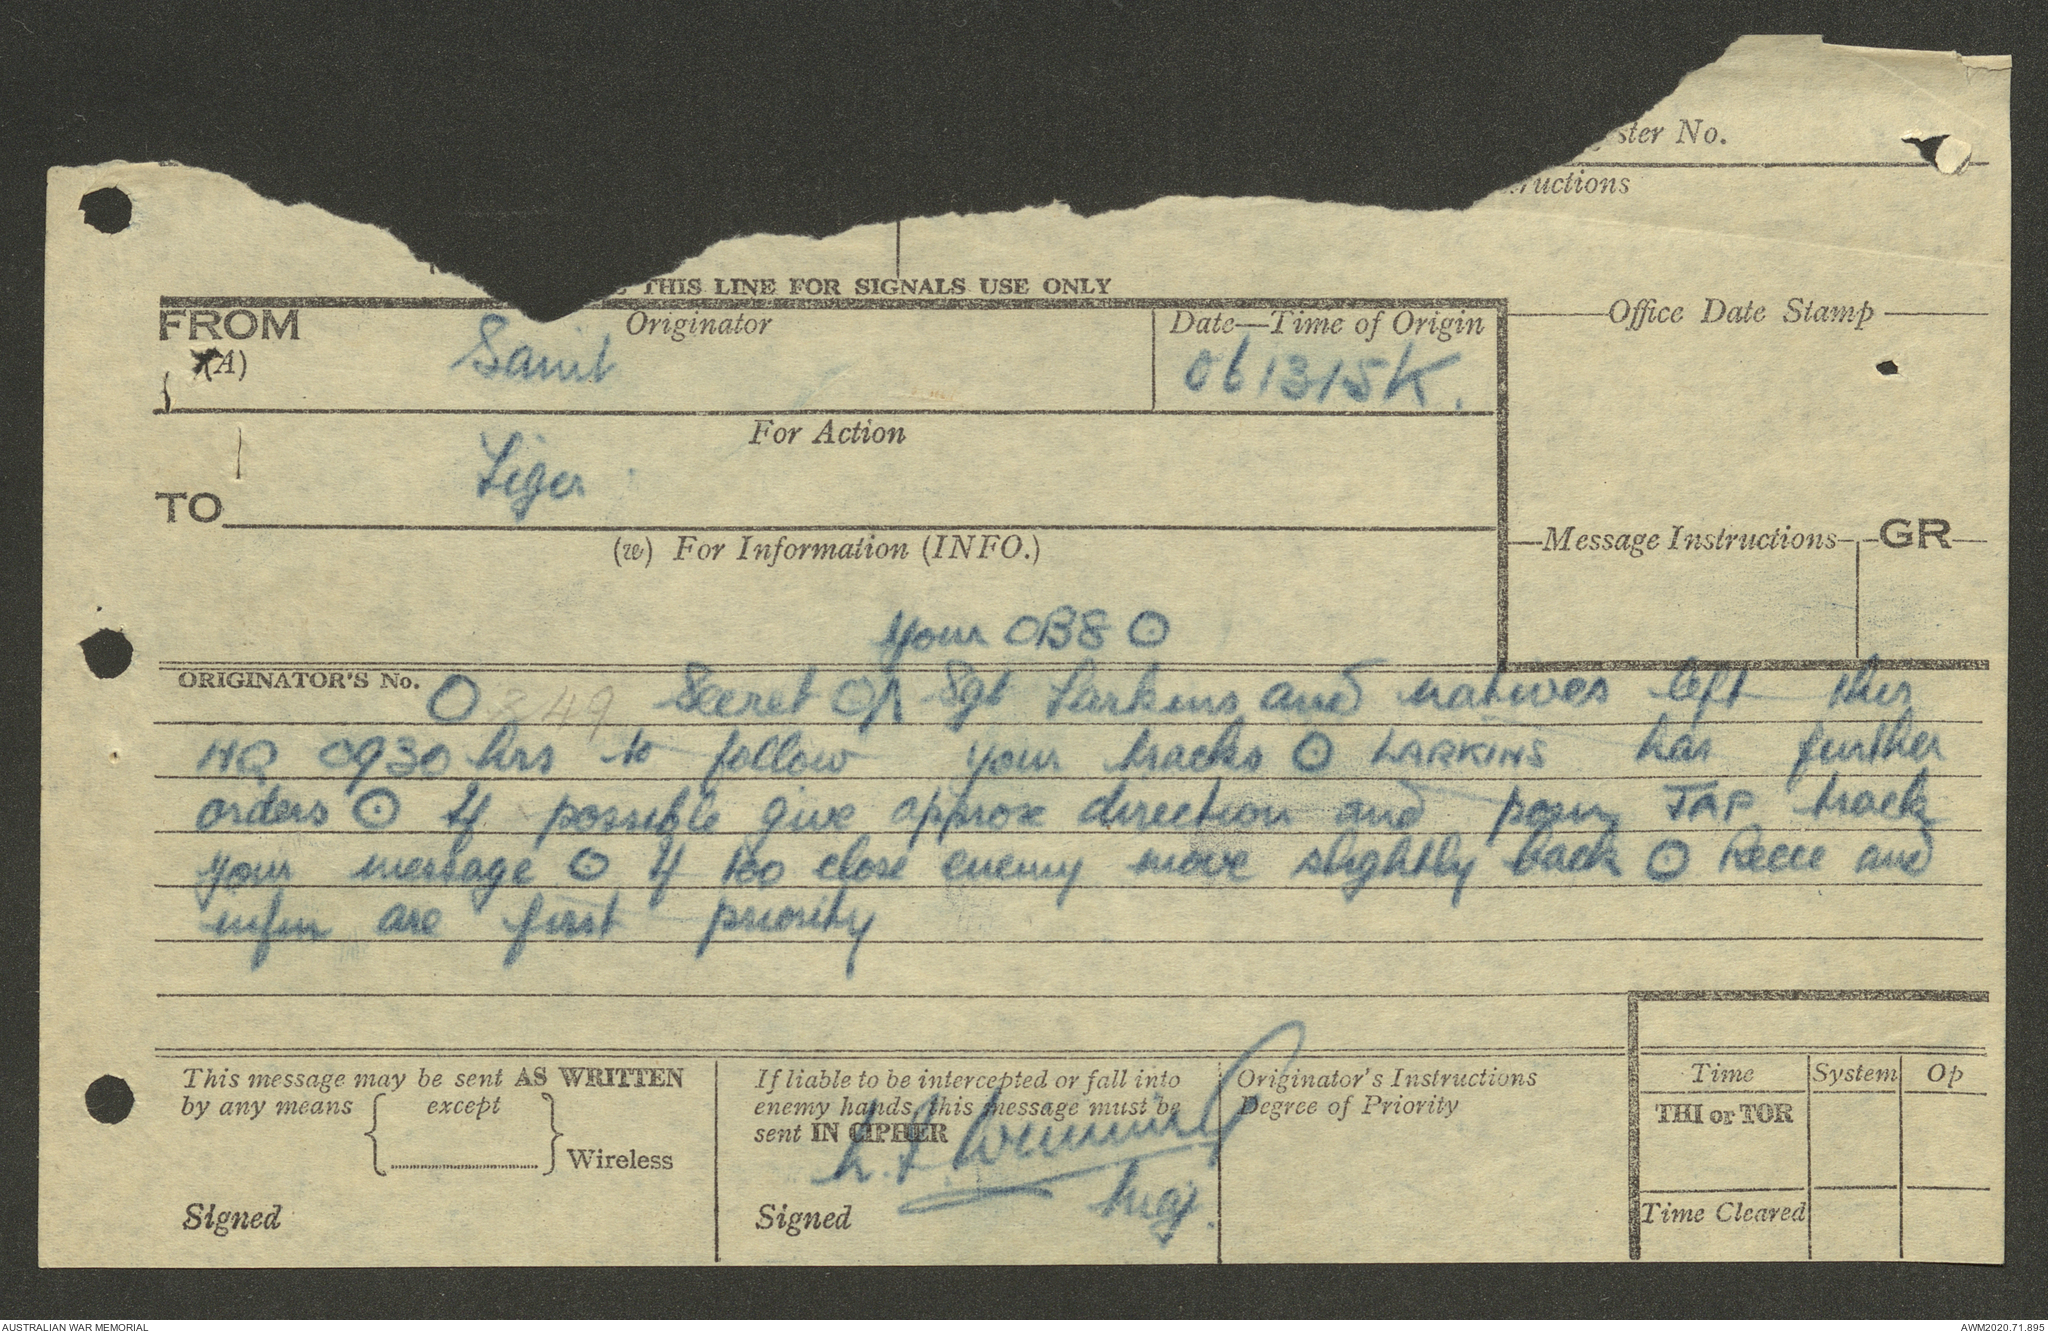 ster No.
ructions
THIS LINE FOR SIGNALS USE ONLY
FROM Originator Date—Time of Origin Office Date Stamp
(A) 061315K.
For Action
Tiger
TO
(w) For Information (INFO.) Message Instructions GR
Your OB8 ⊙
ORIGINATOR'S No. O 349 Secret ⊙ Sgt Larkins and natives left this
HQ 0930 hrs to follow your tracks ⊙ LARKINS has further
orders ⊙ If possible give approx direction and posn JAP track
your message ⊙ If too close enemy move slightly back ⊙ Recce and
infm are first priority
This message may be sent AS WRITTEN
by any means except
Wireless
Signed
If liable to be intercepted or fall into
enemy hands, this message must be
sent IN CIPHER
Signed
Maj.
Originator's Instructions
Degree of Priority
Time System Op
THI or TOR
Time Cleared
AUSTRALIAN WAR MEMORIAL
AWM2020.71.895